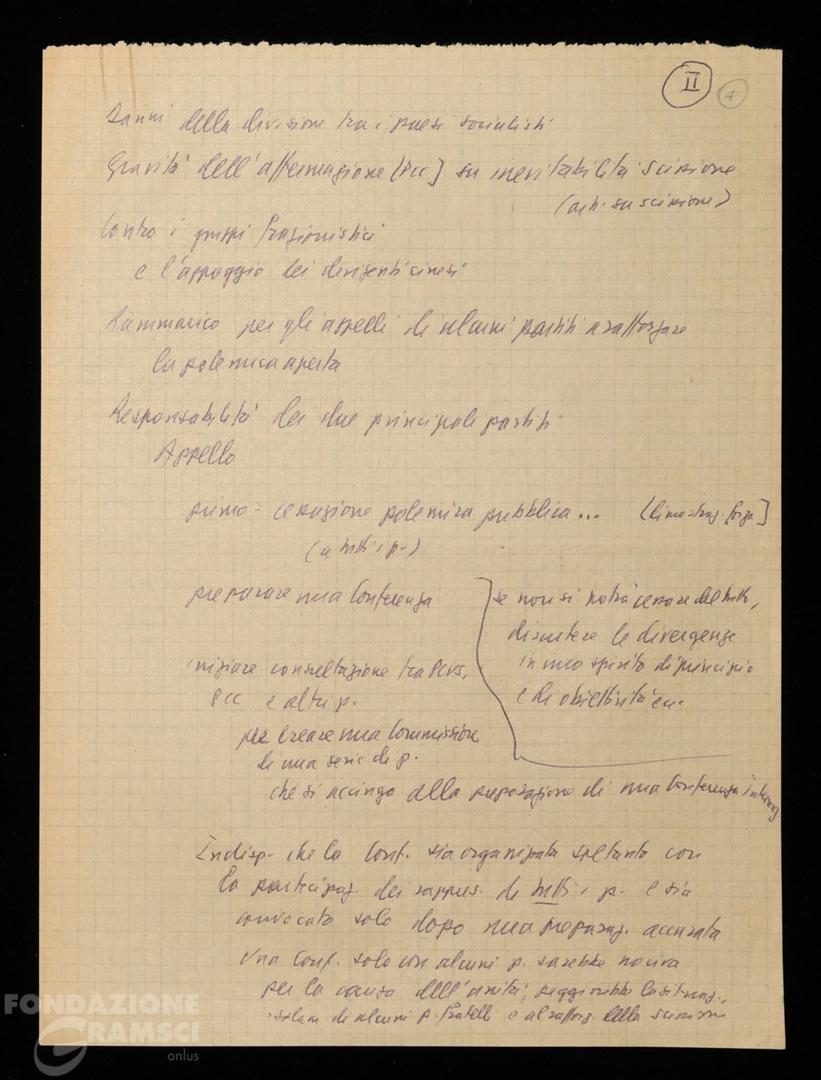 II
Danni della divisione tra i paesi socialisti
Gravità dell'affermazione [PCC] su inevitabilità scissione
(art. su scissione)
Contro i gruppi frazionistici
e l'appoggio dei dirigenti cinesi
Rammarico per gli appelli di alcuni partiti a rafforzare
la polemica aperta
Responsabilità dei due principali partiti
Appello
primo = cessazione polemica pubblica...
(a tutti i p.)
preparare una Conferenza
se non si potrà cessare del tutto,
discutere le divergenze
in uno spirito di principio
e di obiettività ecc.
iniziare consultazione tra PCUS,
PCC e altri p.
per creare una Commissione
di una serie di p.
che si accinga alla preparazione di una Conferenza internaz.
Indisp. che la Conf. sia organizzata soltanto con
la partecipaz. dei rappres. di tutti i p. e sia
convocata solo dopo una preparaz. accurata
Una Conf. solo con alcuni p. sarebbe nociva
per la causa dell'unità,
di alcuni p. fratelli e al rafforz. della scissione
FONDAZIONE
GRAMSCI
onlus